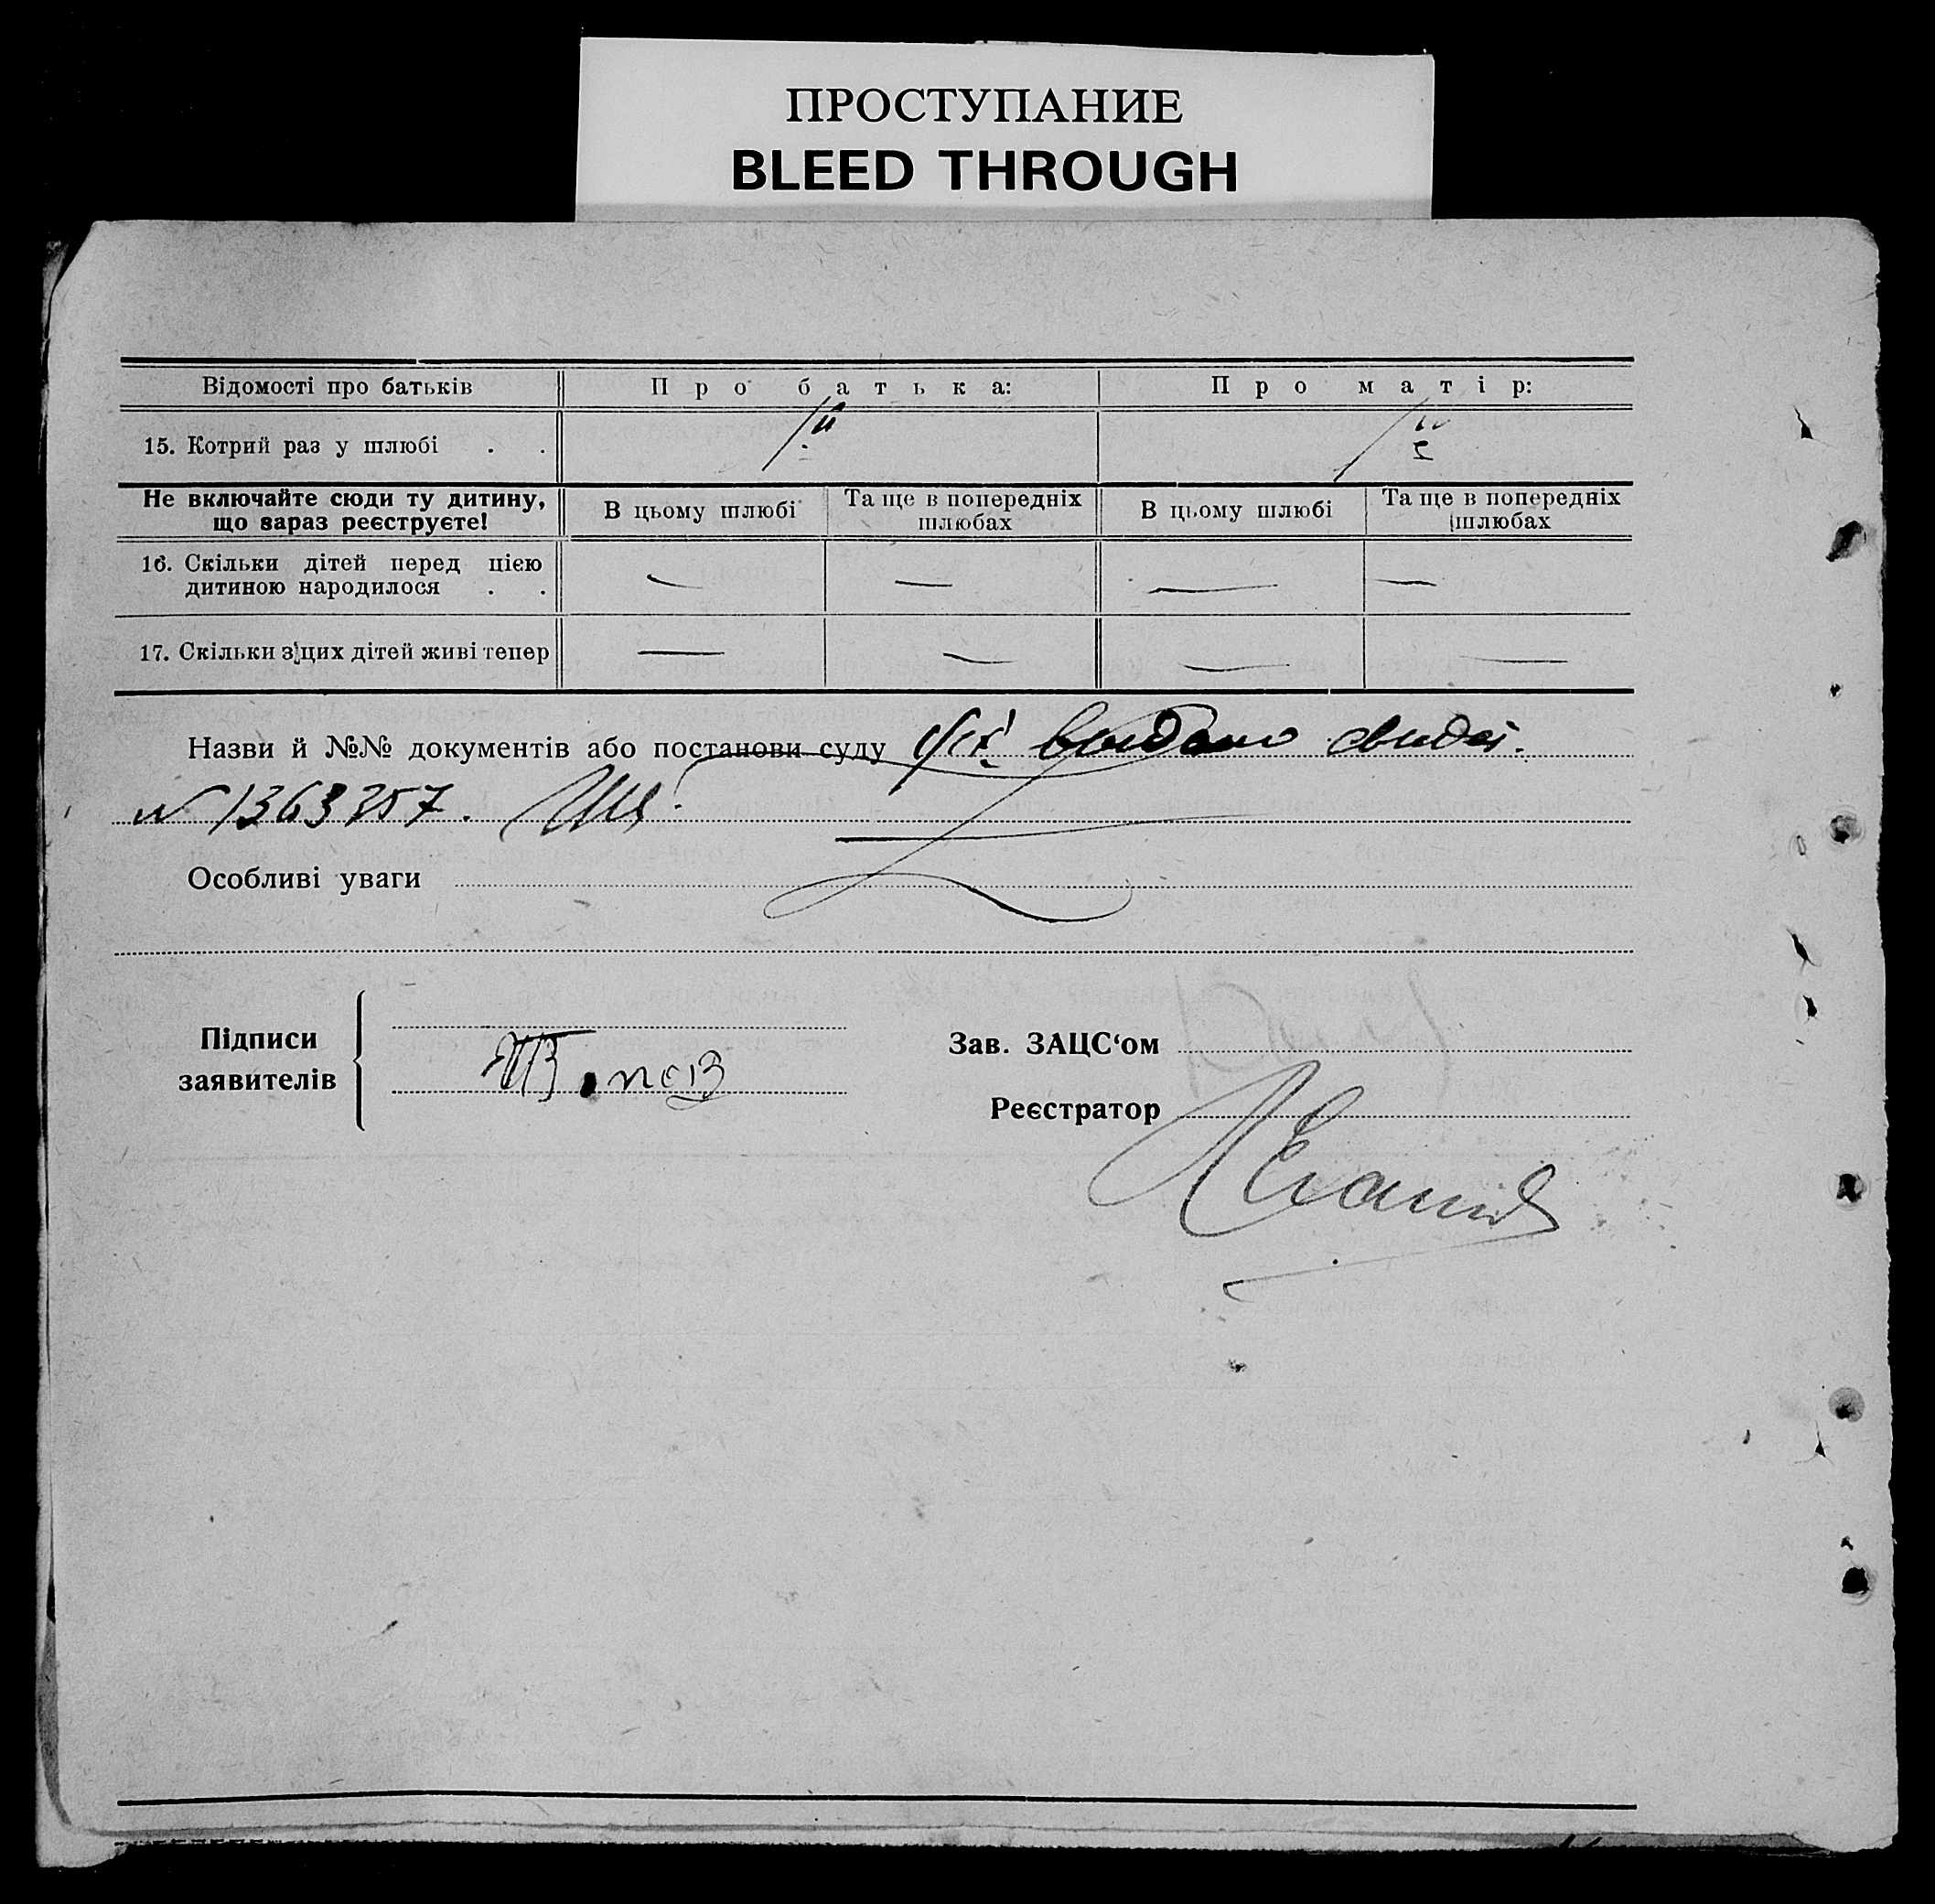 ПРОСТУПАНИЕ
BLEED THROUGH
Відомості про батьків Про батька: Про матір:
15. Котрий раз у шлюбі . .
Не включайте сюди ту дитину, що зараз реєструєте! В цьому шлюбі Та ще в попередніх шлюбах В цьому шлюбі Та ще в попередніх шлюбах
16. Скільки дітей перед цією дитиною народилося . . — — — —
17. Скільки з цих дітей живі тепер — — — —
Назви й №№ документів або постанови суду видано
N 1363357.
Особливі уваги
Підписи заявителів
Зав. ЗАЦС‘ом
Реєстратор